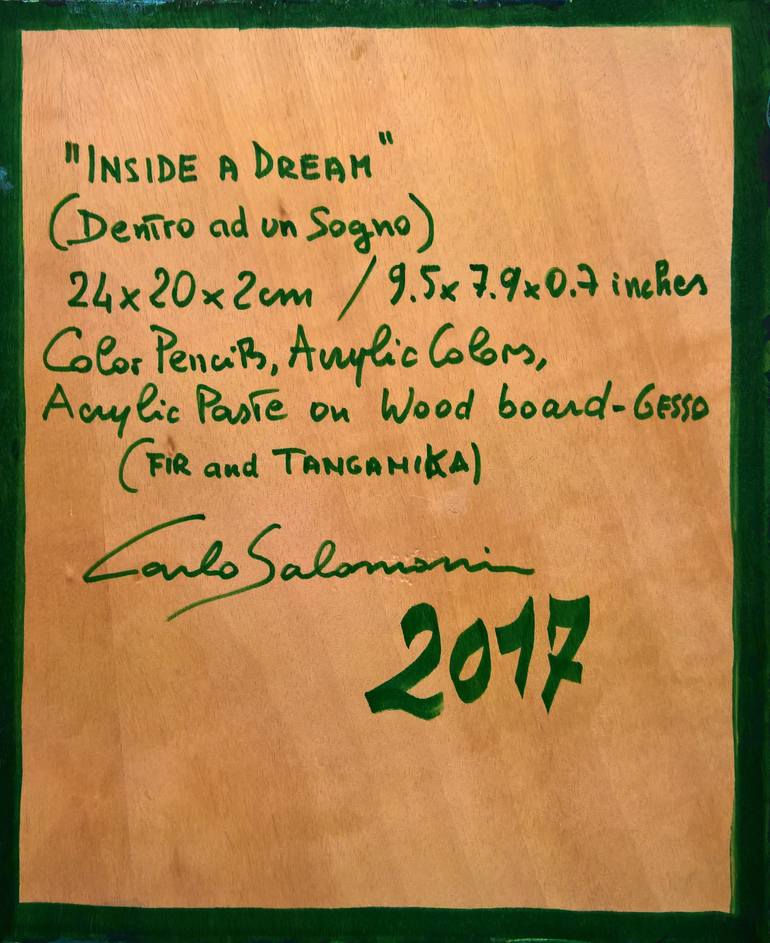 "INSIDE A DREAM"
(Dentro ad un Sogno)
24x20x2cm / 9.5x7.9x0.7 inches
Color Pencils, Acrylic Colors,
Acrylic Paste on Wood board-GESSO
(FIR and TANGANIKA)
Carlo Salomoni
2017